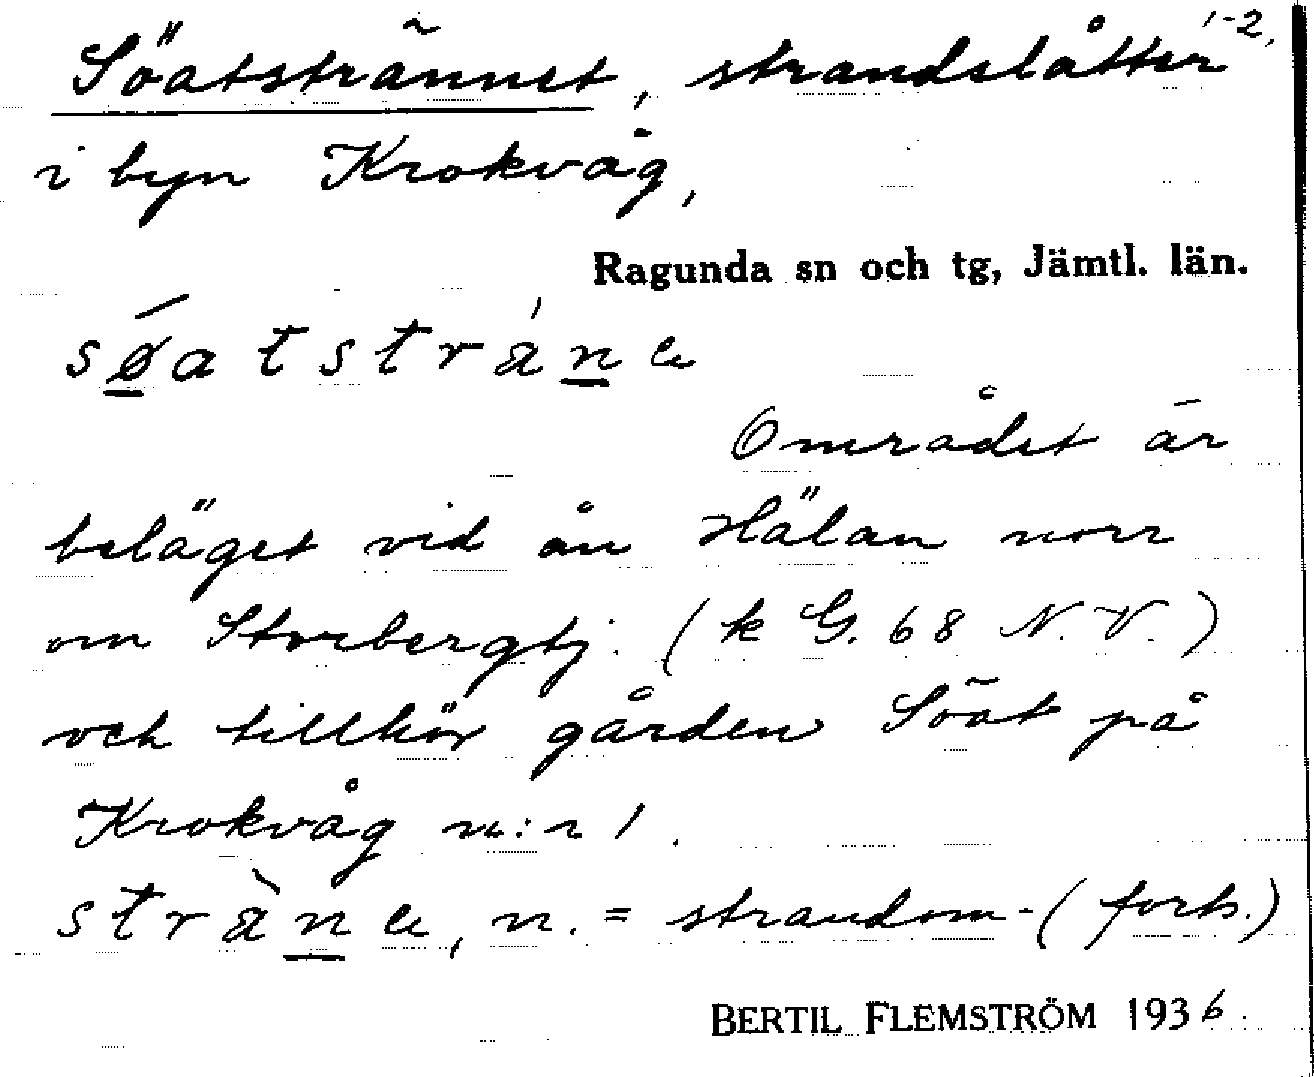 1-2,
Söatstrännet, strandslåtter
i byn Krokvåg,
Ragunda sn och tg, Jämtl. län.
søatsträne
Området är
beläget vid ån Hälan norr
om Storbergtj. (k G. 68 N.V.)
och tillhör gården Söat på
Krokvåg n:r 1.
sträne, n. = strandom- (forts.)
BERTIL FLEMSTRÖM 1936